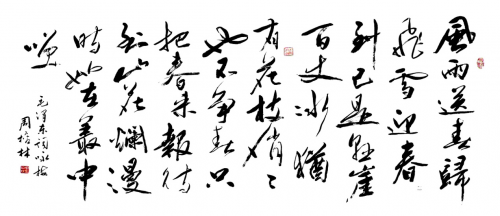 風雨送春歸
飛雪迎春
到已是懸崖
百丈冰猶
有花枝俏〻
也不爭春只
把春來報待
到山花爛漫
時她在叢中
笑
毛澤東詞咏梅
周林